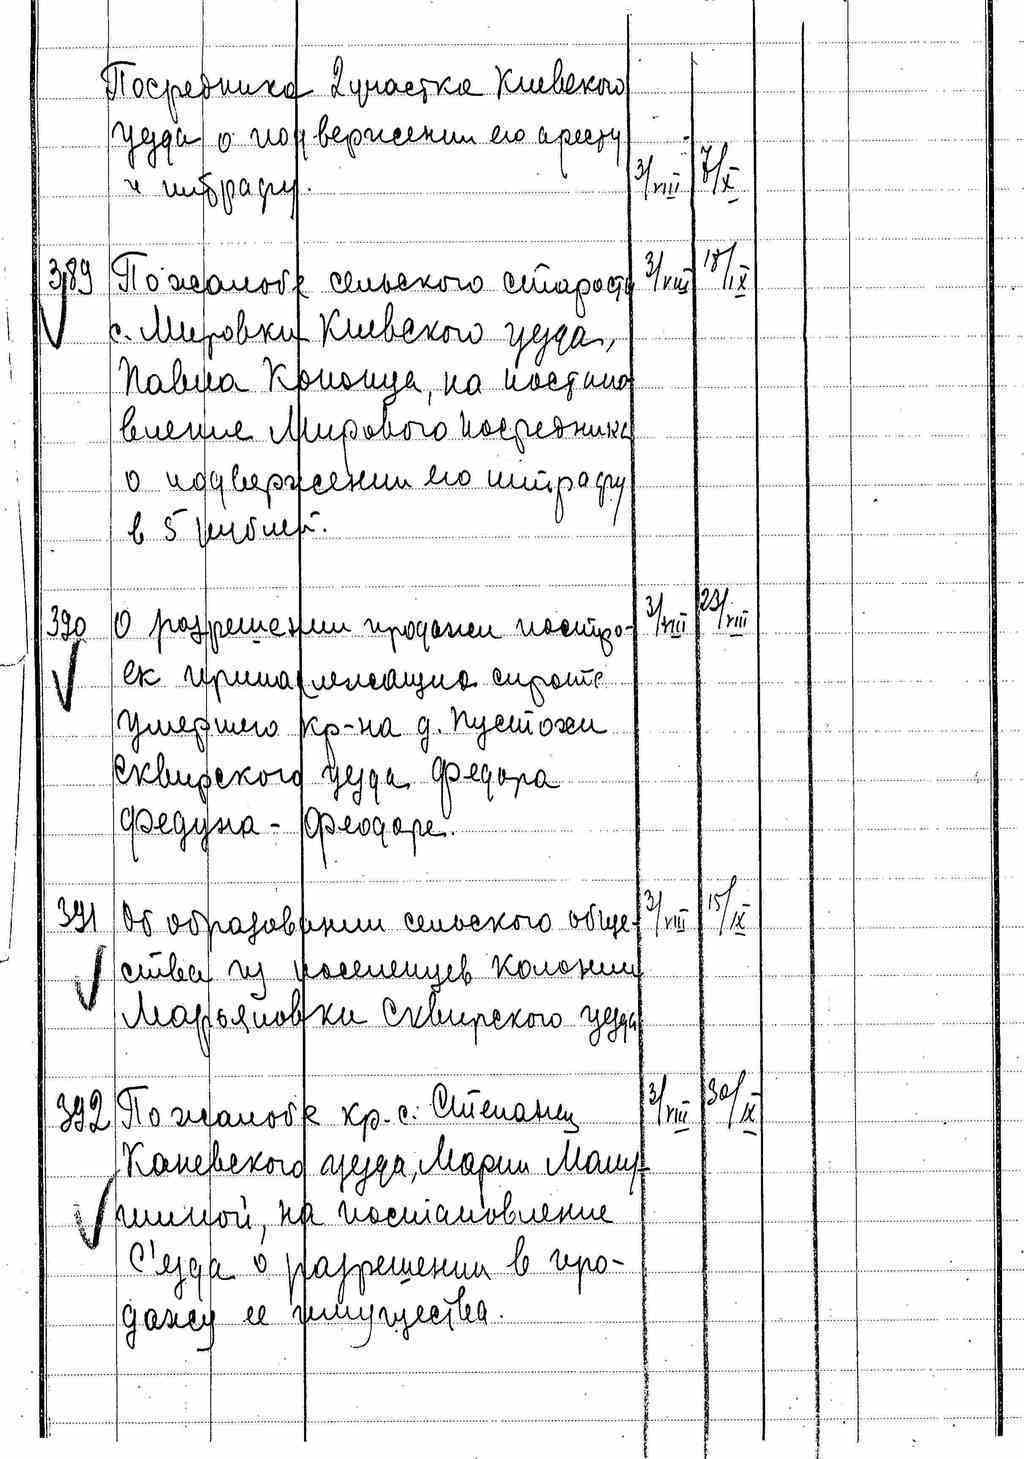 Посредника 2 участка Киевского
уезда о подвержении его аресту
и штрафу. 3/VIII 7/X
389 По жалобе сельского старосты 3/VIII 18/IX
с. Мировки Киевского уезда,
Павла Кононца, на постано
вление Мирового посредника
о подвержении его штрафу
в 5 рублей.
390 О разрешении продажи постро- 3/VIII 23/VIII
ек принадлежащих сироте
умершего кр-на д. Пустохи
Сквирского уезда Федора
Федуна - Феодоре.
391 Об образовании сельского обще- 3/VIII 15/IX
ства из поселенцев Колонии
Марьяновки Сквирского уезда
392 По жалобе кр. с. Степанец 3/VIII 30/IX
Каневского уезда, Марии
на постановление
С'езда о разрешении в про-
дажу ее имущества.